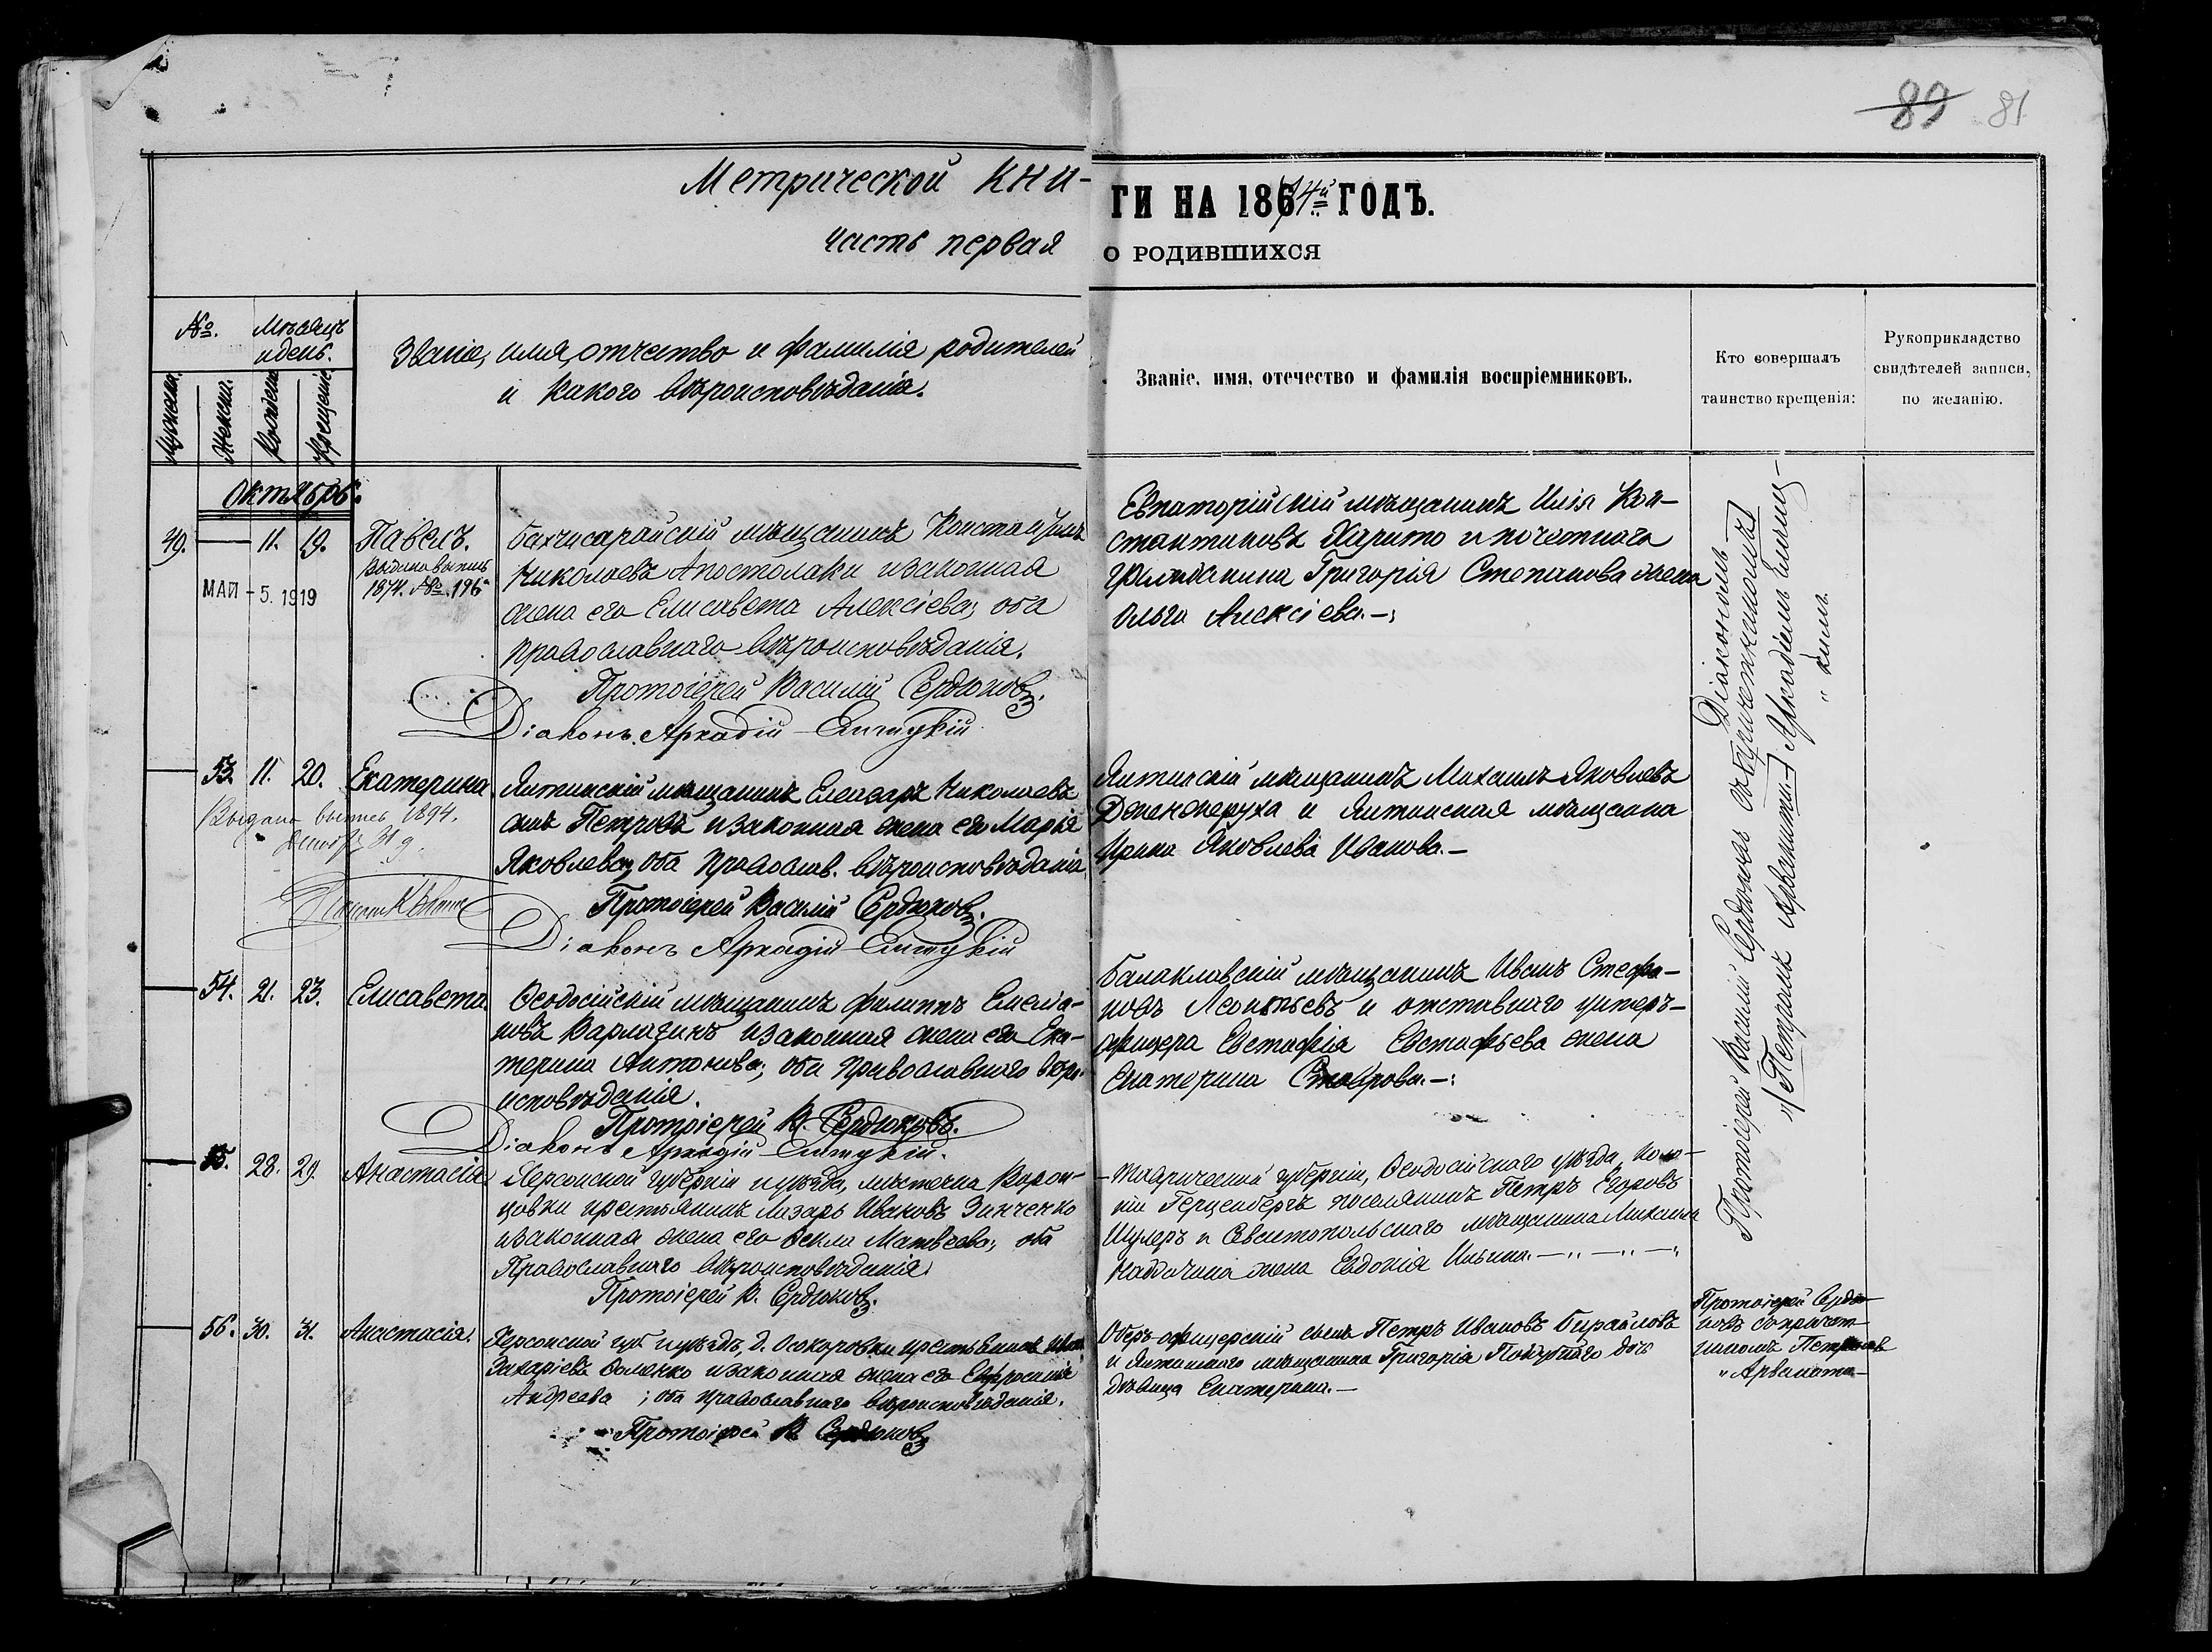 89 81
Метрической КНИ-
ГИ НА 1874й ГОДЪ.
часть первая
О РОДИВШИХСЯ
№.
Мѣсяцъ
и день.
Званіе, имя, отчество и фамилія родителей
и какого вѣроисповѣданія.
Женски.
Рожденія
Крещенія
Званіе, имя, отечество и фамилія воспріемниковъ.
Кто совершалъ
таинство крещенія:
Рукоприкладство
свидѣтелей записи,
по желанію.
Октябрь.
49. 11. 19. Павелъ.
1874. № 196
МАЙ - 5. 1919
Бахчисарайскій мѣщанинъ Константинъ
Николаевъ Апостолаки и законная
жена его Елисавета Алексіева; оба
православнаго вѣроисповѣданія.
Протоіерей Василій Сердюковъ.
Діаконъ Аркадій
Евпаторійскій мѣщанинъ Илія Кон-
стантиновъ Харито и почетнаго
гражданина Григорія Степанова жена
Ольга Алексіева.-:
53. 11. 20. Екатерина.
Выдана выпись 1894.
31 д.
Ялтинскій мѣщанинъ Елеазаръ Николаевъ
сынъ Петровъ и законная жена его Марія
Яковлева; оба православ. вѣроисповѣданія
Протоіерей Василій Сердюковъ.
Діаконъ Аркадій
Ялтинскій мѣщанинъ Михаилъ Яковлевъ
Дженджеруха и Ялтинская мѣщанка
Ирина Яковлева Иванова.-
54. 21. 23. Елисавета.
Ѳеодосійскій мѣщанинъ Филиппъ Емелiа-
новъ и законная жена его Ека-
терина Антонова; оба православнаго вѣро-
исповѣданія.
Протоіерей В. Сердюковъ.
Діаконъ Аркадій
Балаклавскій мѣщанинъ Иванъ Стефа-
новъ Леонтьевъ и отставнаго унтеръ-
офицера Евстафія Евстафьева жена
Екатерина Ставрова.-:
55. 28. 29. Анастасія
Херсонской губерніи и уѣзда, мѣстечка Ворон-
цовки крестьянинъ Лазарь Ивановъ Зинченко
и законная жена его Ѳекла Матвѣева; оба
Православнаго вѣроисповѣданія.
Протоіерей В. Сердюковъ.
Таврической губерніи, Ѳеодосійскаго уѣзда, коло-
ніи Герценбергъ поселянинъ Петръ Егоровъ
Шулеръ и Севастопольскаго мѣщанина Михаила
жена Евдокія Ильина.
56. 30. 31. Анастасія.
Херсонской губ. и уѣзда, д. Осокоровки крестьянинъ
Захаріевъ и законная жена его Евфросинія
Андреева; оба православнаго вѣроисповѣданія.
Протоіерей В. Сердюковъ
Оберъ-офицерскій сынъ Петръ Ивановъ
и Ялтинскаго мѣщанина Григорія дочь
дѣвица Екатерина.-
Протоіерей Василій Сердюковъ съ Діакономъ
Аркадіемъ
Протоіерей Сердю-
ковъ съ причет-
никомъ Петромъ